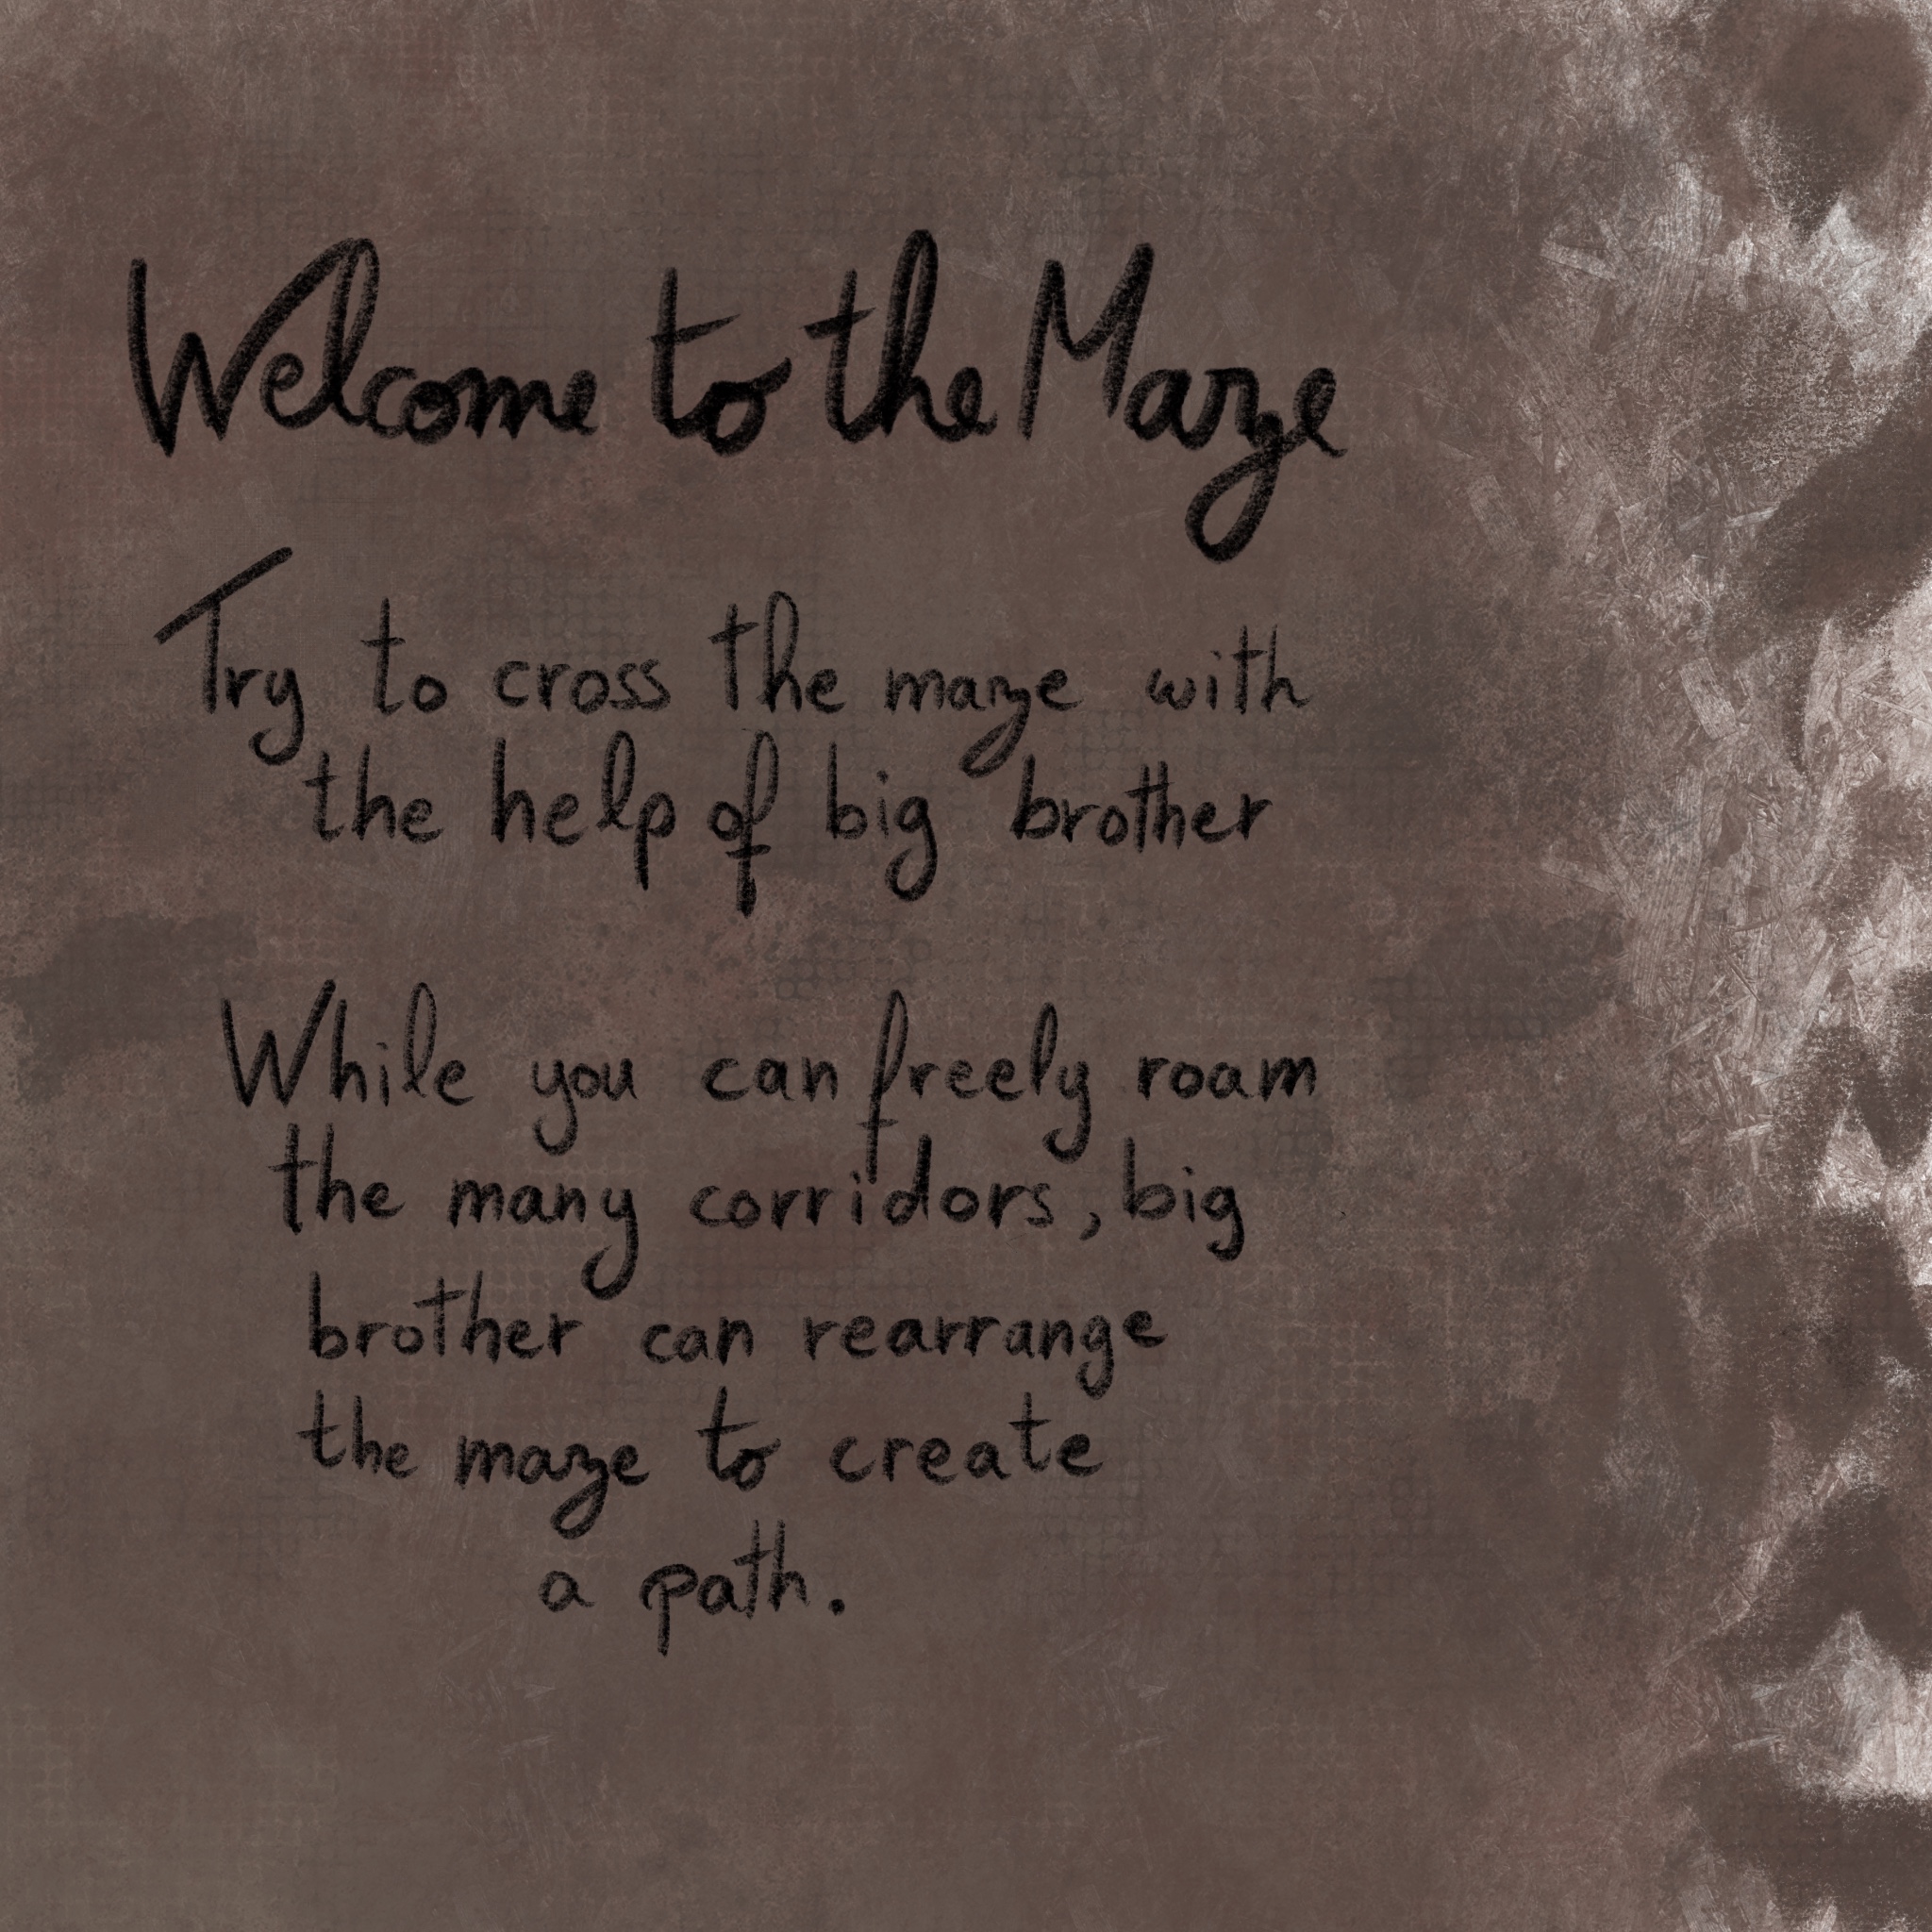 Welcome to the Maze
Try to cross the maze with
the help of big brother
While you can freely roam
the many corridors, big
brother can rearrange
the maze to create
a path.